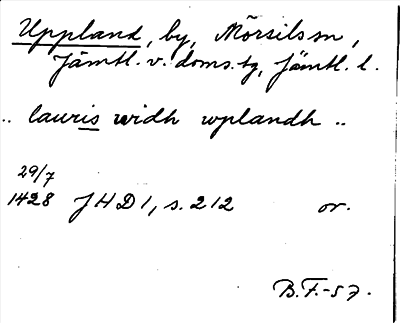 Uppland, by, Mörsils sn,
Jämtl. v. doms.tg, Jämtl. l.
.. lauris widh wplandh ..
29/7
1428 JHD 1, s. 212 or.
B.F.-57.